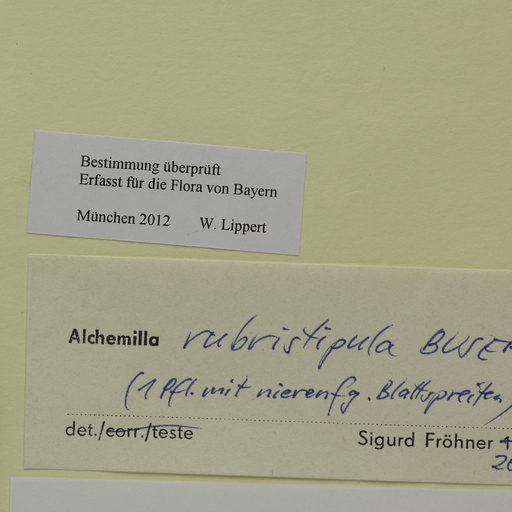 Bestimmung überprüft
Erfasst für die Flora von Bayern
München 2012 W. Lippert
Alchemilla rubristipula BUSER
(1 Pfl. mit nierenfg. Blattspreiten)
det./corr./teste Sigurd Fröhner